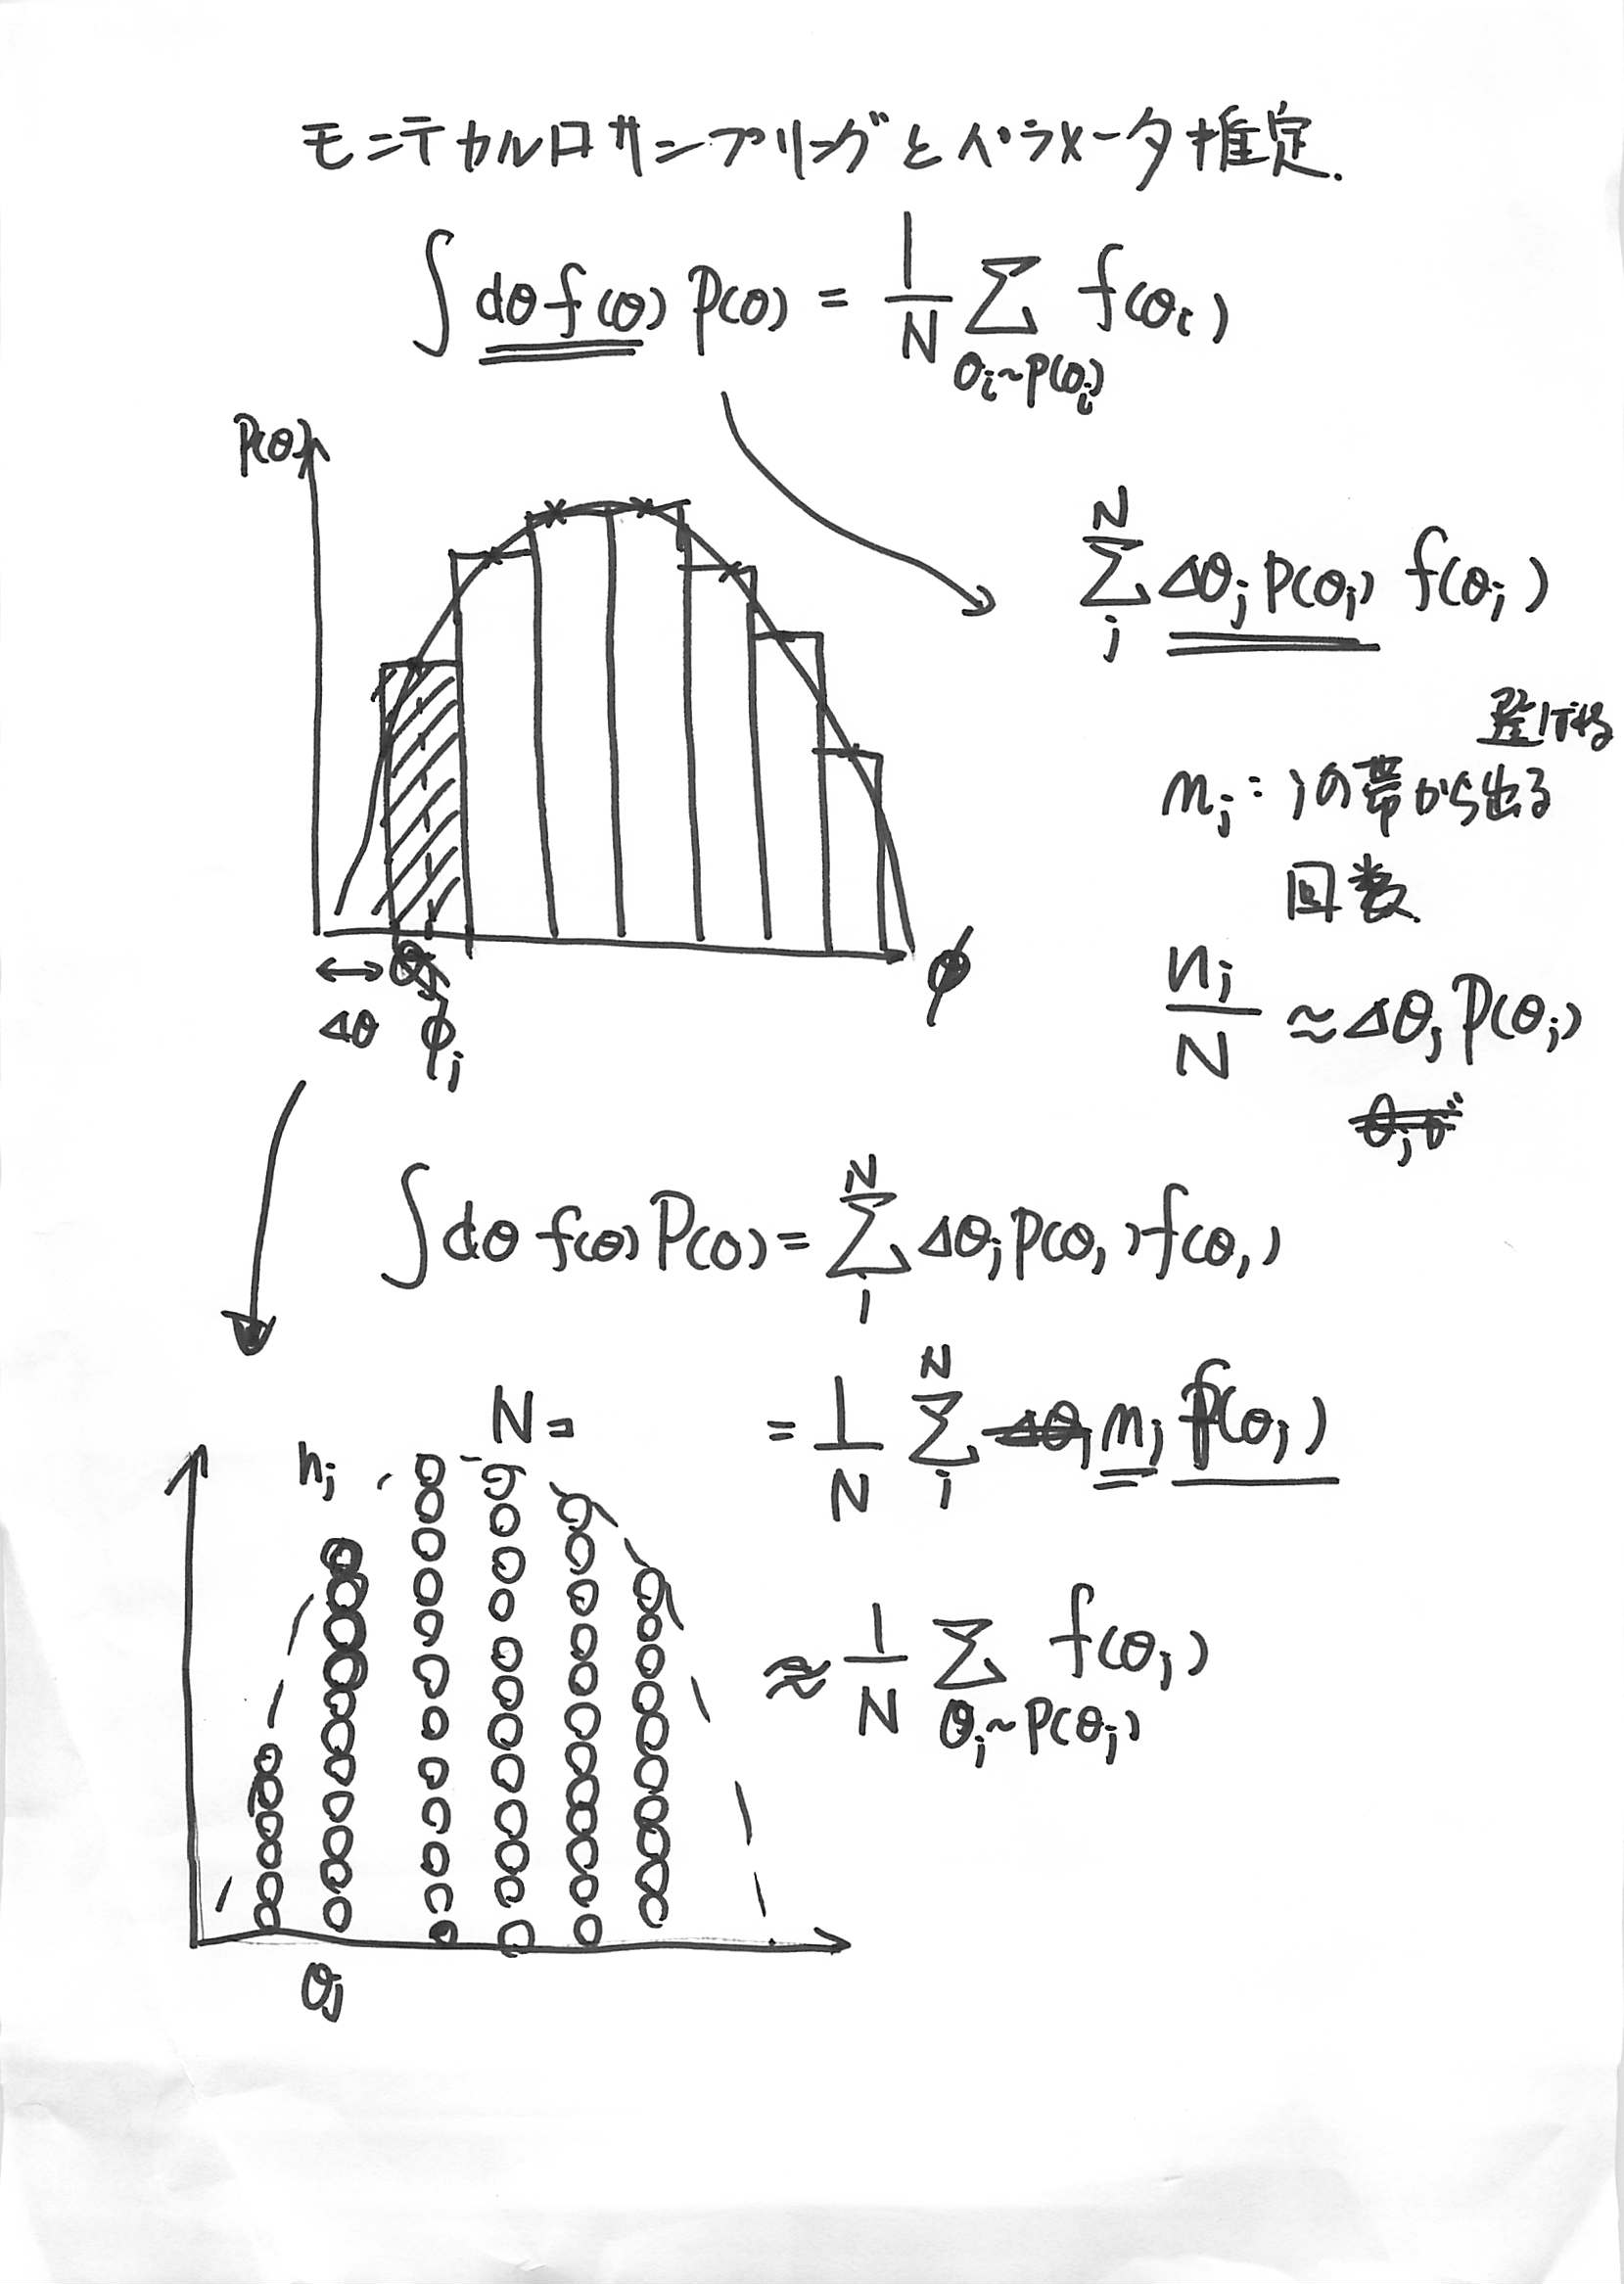 モンテカルロサンプリングとパラメータ推定.
∫ dθ f(θ) P(θ) = 1/N Σ_{θi~P(θi)} f(θi)
P(θ)
Σ_j^N Δθj P(θj) f(θj)
nj : jの帯から出る
回数
nj/N ≈ Δθj P(θj)
Δθ
ϕj
ϕ
∫ dθ f(θ) P(θ) = Σ_j^N Δθj P(θj) f(θj)
N =
= 1/N Σ_j^N nj f(θj)
nj
≈ 1/N Σ_{θj~P(θj)} f(θj)
θj